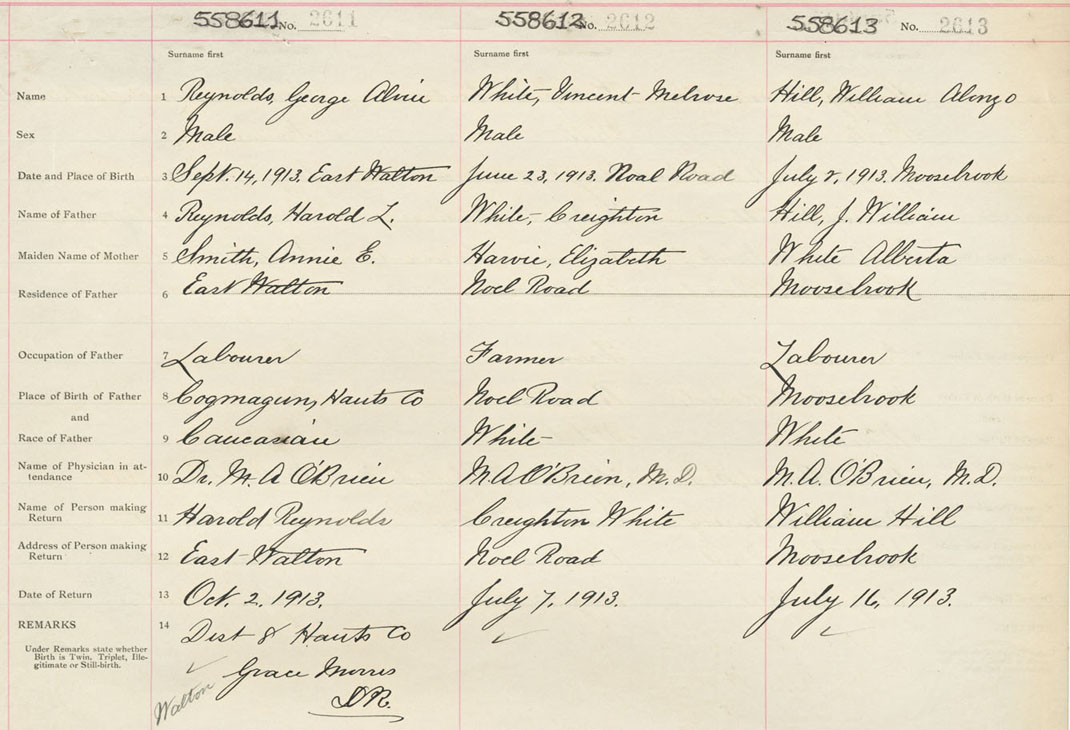 558611 No. 2611 558612 No. 2612 558613 No. 2613
Surname first Surname first Surname first
Name 1 Reynolds, George Alvin White, Vincent Melrose Hill, William Alonzo
Sex 2 Male Male Male
Date and Place of Birth 3 Sept. 14, 1913. East Walton June 23, 1913. Noel Road July 2, 1913. Moosebrook
Name of Father 4 Reynolds, Harold L. White, Creighton Hill, J. William
Maiden Name of Mother 5 Smith, Annie E. Harvie, Elizabeth White Alberta
Residence of Father 6 East Walton Noel Road Moosebrook
Occupation of Father 7 Labourer Farmer Labourer
Place of Birth of Father 8 Cogmagun, Hants Co Noel Road Moosebrook
and
Race of Father 9 Caucasian White White
Name of Physician in at-
tendance 10 Dr. M. A O'Brien M. A O'Brien, M. D. M. A. O'Brien, M. D.
Name of Person making
Return 11 Harold Reynolds Creighton White William Hill
Address of Person making
Return 12 East Walton Noel Road Moosebrook
Date of Return 13 Oct. 2, 1913. July 7, 1913. July 16, 1913.
REMARKS 14 Dist 8 Hants Co
Under Remarks state whether
Birth is Twin, Triplet, Ille-
gitimate or Still-birth.
Grace Morris
Walton D R.